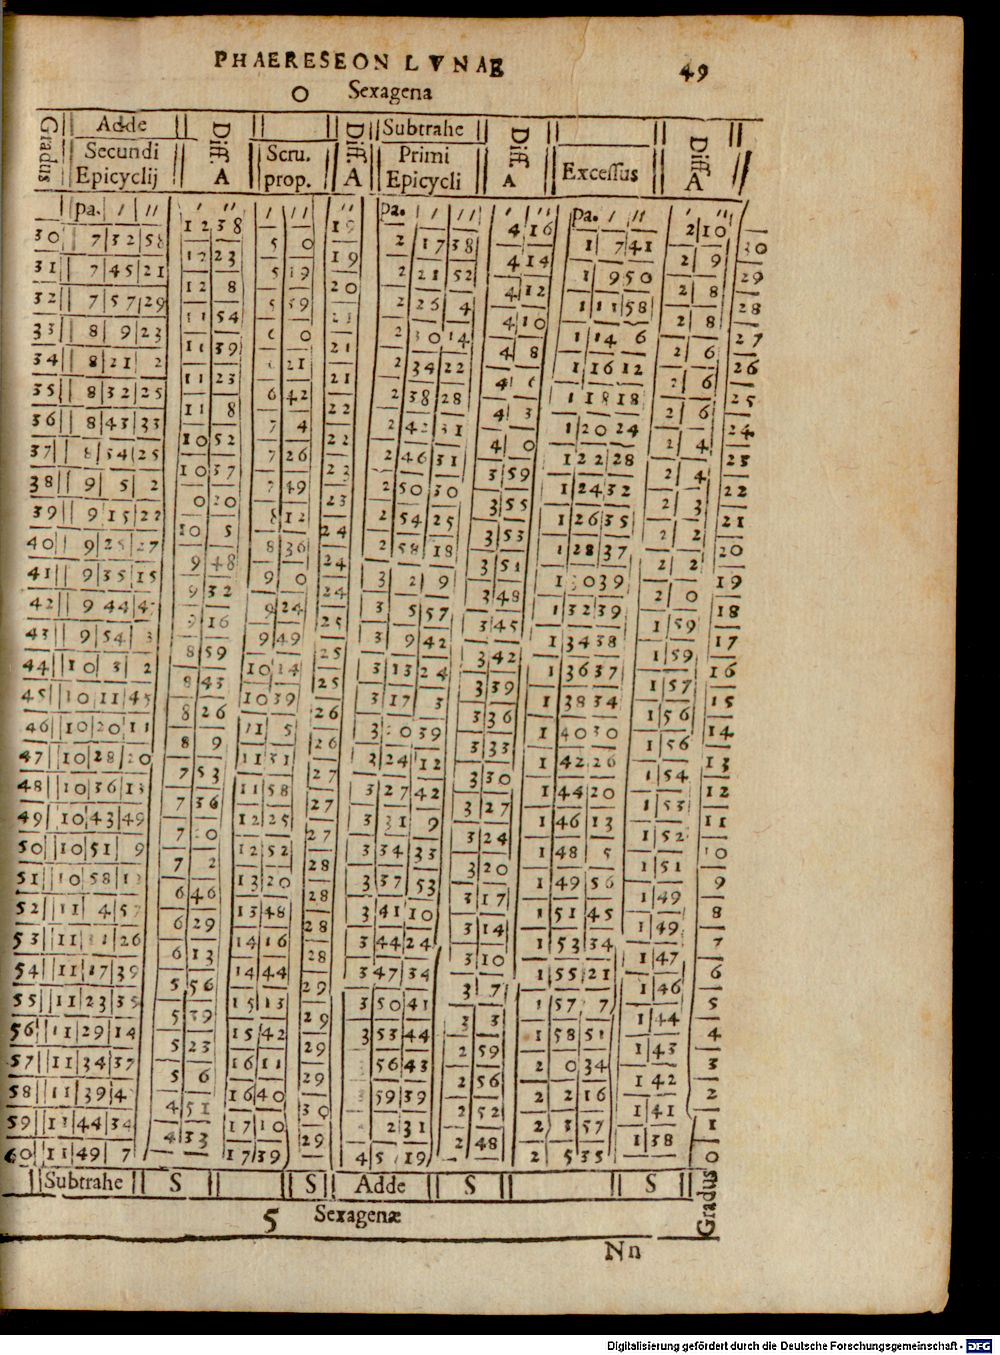 PHAERESEON LVNAE 49
0 Sexagena
Gradus Adde Diff. A Diff. A Subtrahe Diff. A Diff. A
Secundi Epicyclij Scru. prop. Primi Epicycli Excessus
pa. ' '' ' '' ' '' '' pa. ' '' ' '' pa. ' '' ' ''
30 7 32 58 12 38 5 0 19 2 17 38 4 16 1 7 41 2 10 30
31 7 45 21 12 23 5 19 19 2 21 52 4 14 1 9 50 2 9 29
32 7 57 29 12 8 5 59 20 2 26 4 4 12 1 11 58 2 8 28
33 8 9 23 11 54 0 2 30 14 4 10 1 14 6 2 8 27
34 8 21 2 11 39 21 21 2 34 22 4 8 1 16 12 2 6 26
35 8 32 25 11 23 6 42 21 2 38 28 4 1 18 18 2 6 25
36 8 43 33 11 8 7 4 22 2 42 31 4 3 1 20 24 2 6 24
37 8 54 25 10 52 7 26 22 2 46 31 4 0 1 22 28 2 4 23
38 9 5 2 10 37 7 49 23 2 50 30 3 59 1 24 32 2 4 22
39 9 15 22 0 20 8 12 23 2 54 25 3 55 1 26 35 2 3 21
40 9 25 27 10 5 8 36 24 2 58 18 3 53 1 28 37 2 2 20
41 9 35 15 9 48 9 0 24 3 2 9 3 51 1 30 39 2 2 19
42 9 44 9 32 9 24 24 3 5 57 3 48 1 32 39 2 0 18
43 9 54 3 9 16 9 49 25 3 9 42 3 45 1 34 38 1 59 17
44 10 3 2 8 59 10 14 25 3 13 24 3 42 1 36 37 1 59 16
45 10 11 45 8 43 10 39 25 3 17 3 3 39 1 38 34 1 57 15
46 10 20 11 8 26 11 5 26 3 20 39 3 36 1 40 30 1 56 14
47 10 28 20 8 9 11 31 26 3 24 12 3 33 1 42 26 1 56 13
48 10 36 13 7 53 11 58 27 3 27 42 3 30 1 44 20 1 54 12
49 10 43 49 7 36 12 25 27 3 31 9 3 27 1 46 13 1 53 11
50 10 51 9 7 20 12 52 27 3 34 33 3 24 1 48 5 1 52 10
51 10 58 7 2 13 20 28 3 37 53 3 20 1 49 56 1 51 9
52 11 4 57 6 46 13 48 28 3 41 10 3 17 1 51 45 1 49 8
53 11 11 26 6 29 14 16 28 3 44 24 3 14 1 53 34 1 49 7
54 11 17 39 6 13 14 44 28 3 47 34 3 10 1 55 21 1 47 6
55 11 23 35 5 56 15 13 29 3 50 41 3 7 1 57 7 1 46 5
56 11 29 14 5 39 15 42 29 3 53 44 3 3 1 58 51 1 44 4
57 11 34 37 5 23 16 11 29 56 43 2 59 2 0 34 1 43 3
58 11 39 4 5 6 16 40 29 3 59 39 2 56 2 2 16 1 42 2
59 11 44 34 4 51 17 10 30 2 31 2 52 2 3 57 1 41 1
60 11 49 7 4 33 17 39 29 4 5 19 2 48 2 5 35 1 38 0
Subtrahe S S Adde S S Gradus
5 Sexagenæ
Nn
Digitalisierung gefördert durch die Deutsche Forschungsgemeinschaft - DFG